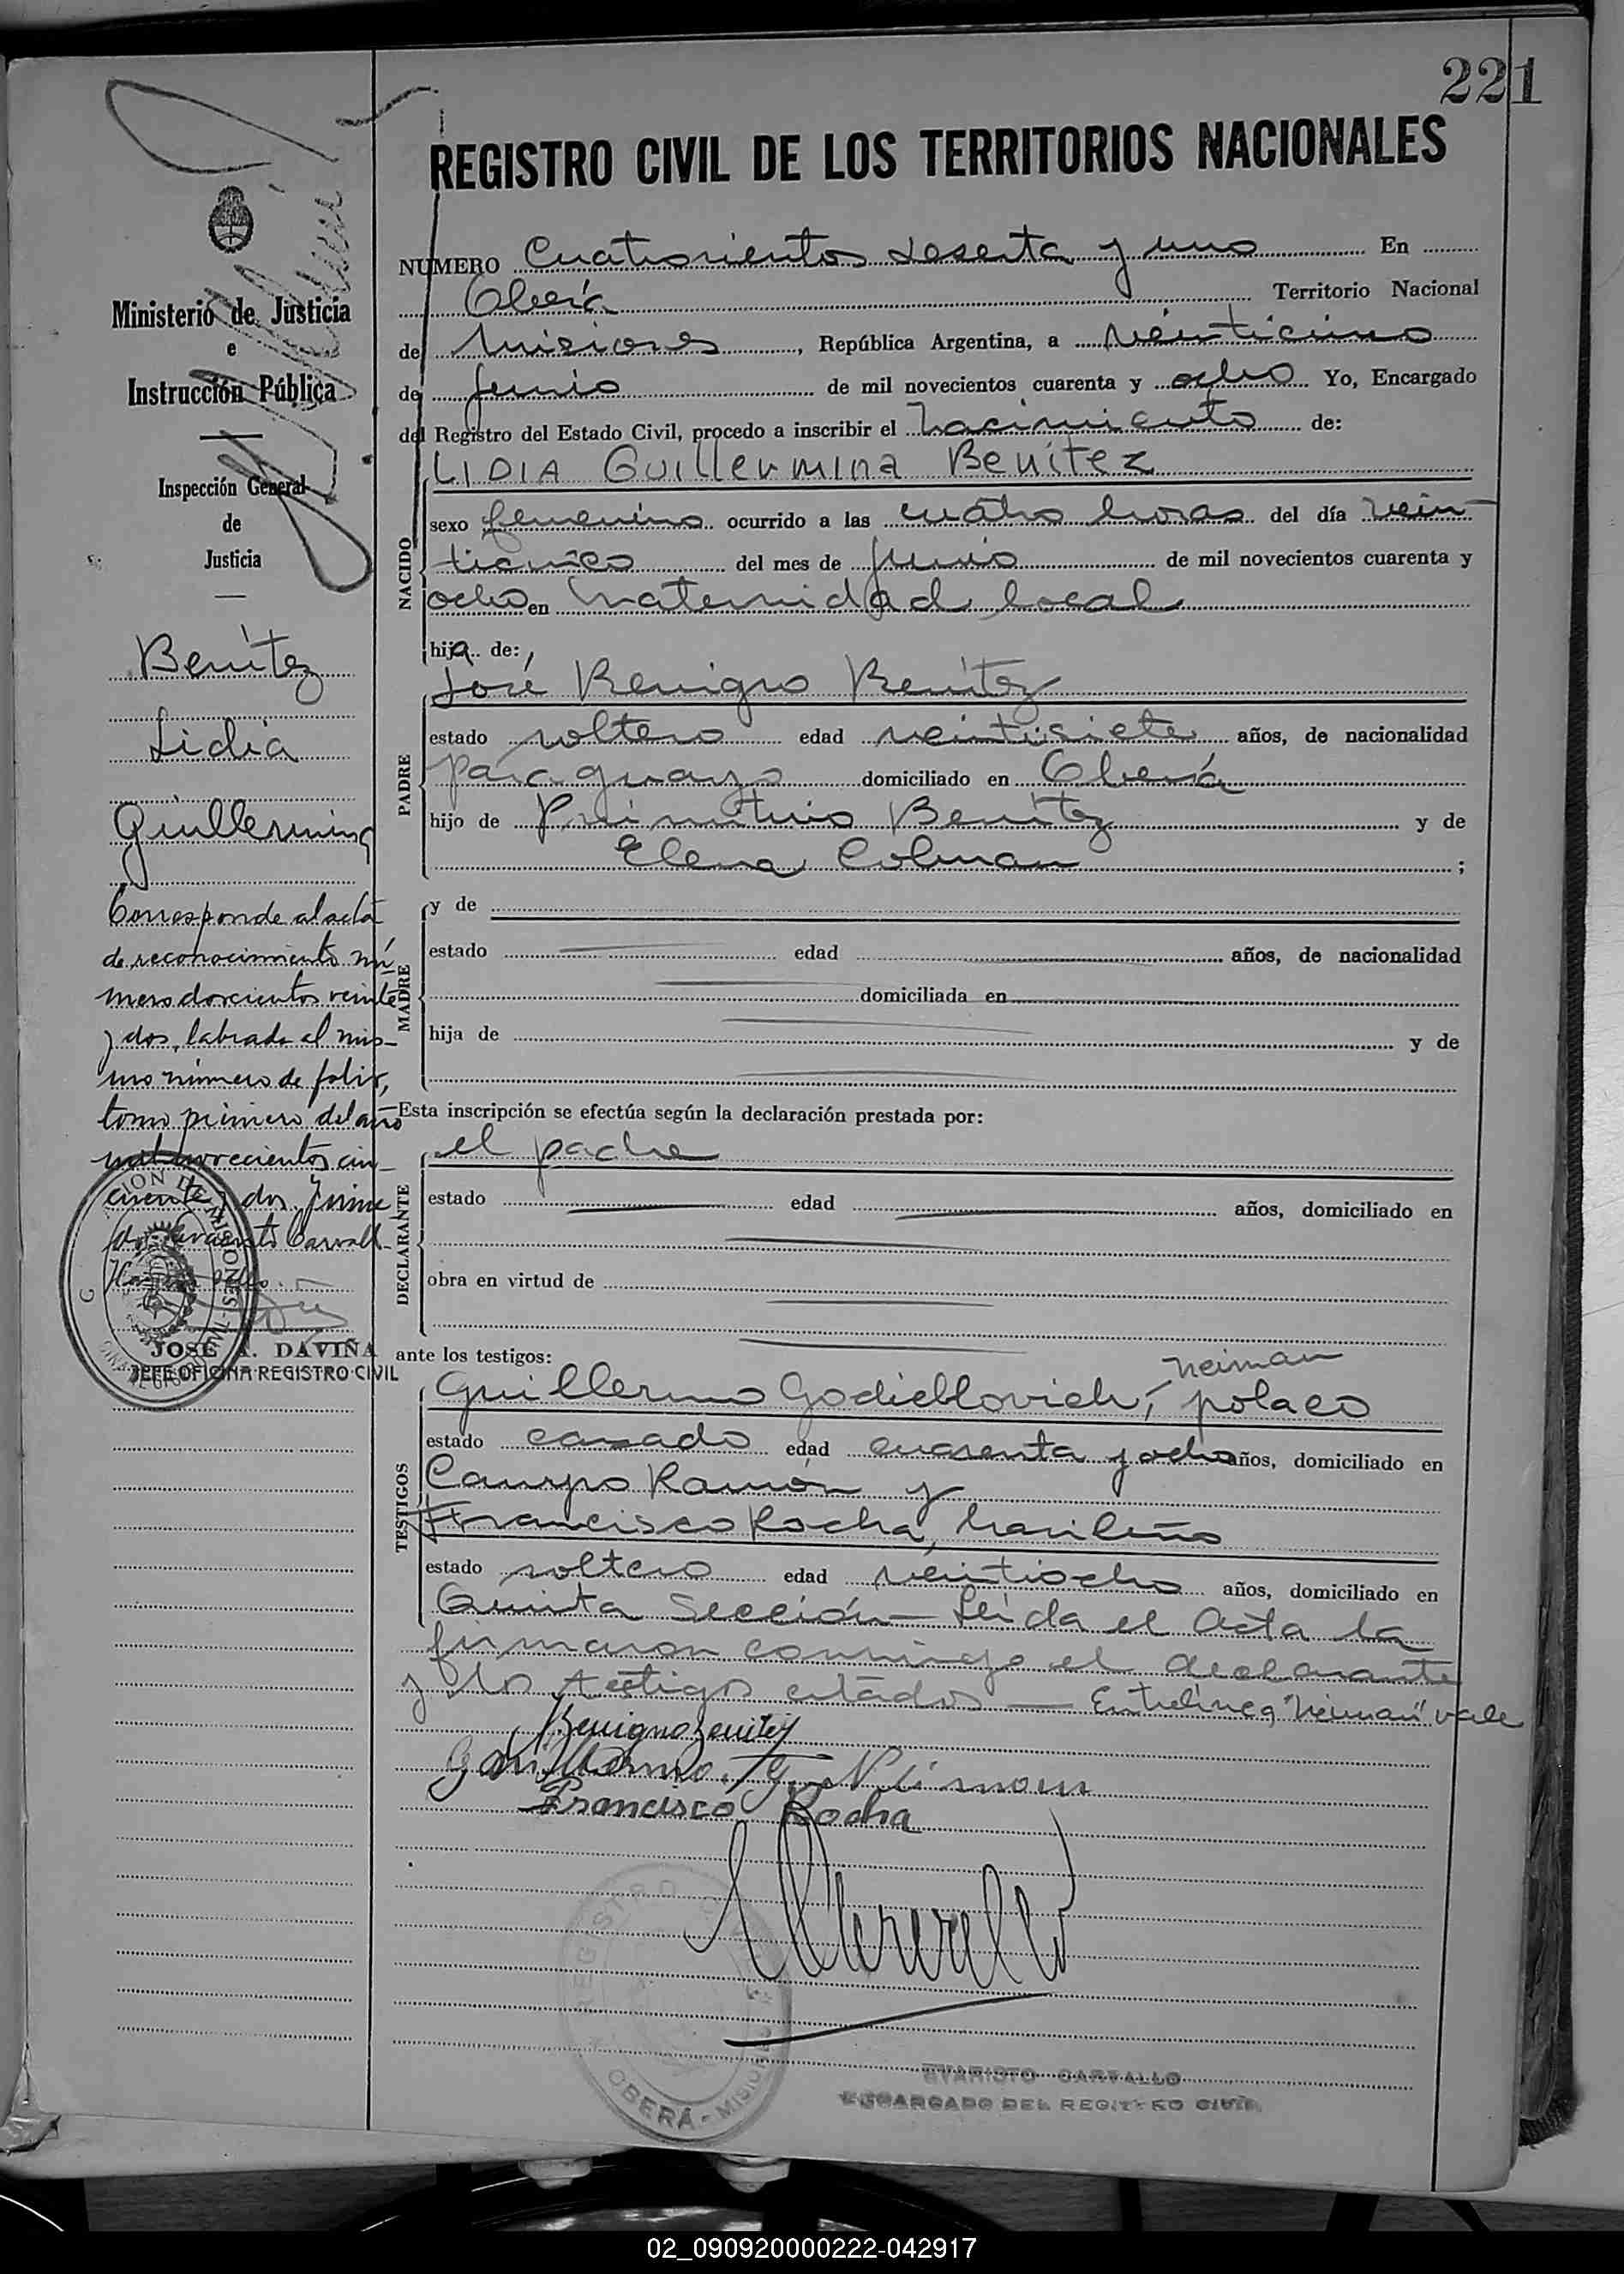 221
REGISTRO CIVIL DE LOS TERRITORIOS NACIONALES
NUMERO Cuatrocientos sesenta y uno En
Oberá Territorio Nacional
de Misiones, República Argentina, a veinticinco
de Junio de mil novecientos cuarenta y ocho Yo, Encargado
del Registro del Estado Civil, procedo a inscribir el nacimiento de:
NACIDO
LIDIA Guillermina Benitez
sexo femenino ocurrido a las cuatro horas del día vein
ticinco del mes de Junio de mil novecientos cuarenta y
ocho en maternidad local
hija de:
PADRE
José Benigno Benítez
estado soltero edad veintisiete años, de nacionalidad
paraguayo domiciliado en Oberá
hijo de Benítez y de
Elena Colman ;
MADRE
y de
estado edad años, de nacionalidad
domiciliada en
hija de y de
Esta inscripción se efectúa según la declaración prestada por:
DECLARANTE
el padre
estado edad años, domiciliado en
obra en virtud de
ante los testigos:
TESTIGOS
neiman
Guillermo Godieblovich, polaco
estado casado edad cuarenta y ocho años, domiciliado en
Campo Ramón y
Francisco Rocha, brasileño
estado soltero edad veintiocho años, domiciliado en
Quinta Sección — Leída el Acta la
firmaron conmigo el declarante
y los testigos citados — Entrelínea "neiman" vale
Benigno Benitez
Guillermo
Francisco Rocha
REGISTRO
OBERÁ - MISIONES
EVARISTO CARVALLO
ENCARGADO DEL REGISTRO CIVIL
Ministerio de Justicia
e
Instrucción Pública
Inspección General
de
Justicia
Benítez
Lidia
Guillermina
Corresponde al acta
de reconocimiento nú
mero doscientos veinte
y dos, labrada al mis-
mo número de folio,
tomo primero del año
mil novecientos cin-
cuenta y dos. Firma
do: Evaristo Carvall
JOSE A. DAVIÑA
JEFE OFICINA REGISTRO CIVIL
02_090920000222-042917